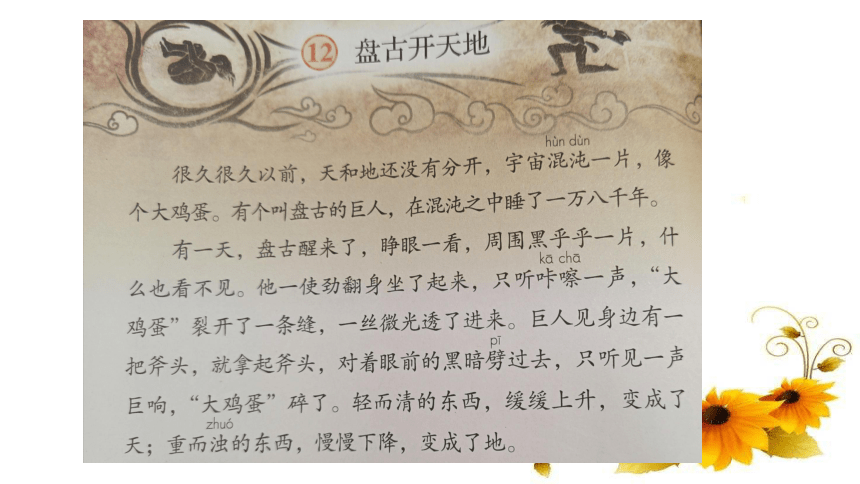 12 盘古开天地
hùn dùn
很久很久以前，天和地还没有分开，宇宙混沌一片，像
个大鸡蛋。有个叫盘古的巨人，在混沌之中睡了一万八千年。
有一天，盘古醒来了，睁眼一看，周围黑乎乎一片，什
kā chā
么也看不见。他一使劲翻身坐了起来，只听咔嚓一声，“大
鸡蛋”裂开了一条缝，一丝微光透了进来。巨人见身边有一
pī
把斧头，就拿起斧头，对着眼前的黑暗劈过去，只听见一声
巨响，“大鸡蛋”碎了。轻而清的东西，缓缓上升，变成了
zhuó
天；重而浊的东西，慢慢下降，变成了地。